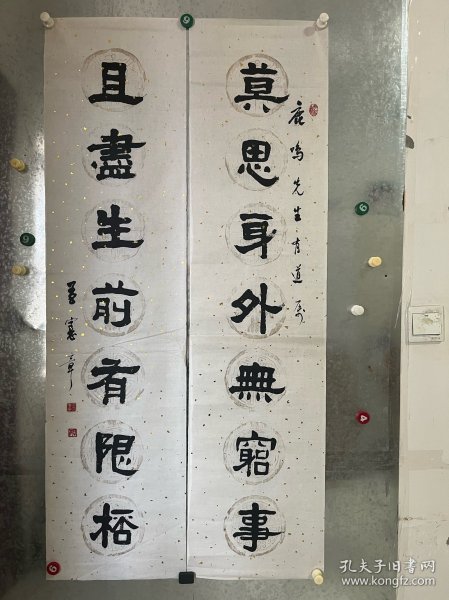 莫思身外無窮事
鹿鸣先生有道属
且盡生前有限桮
孔夫子旧书网
www.kongfz.com